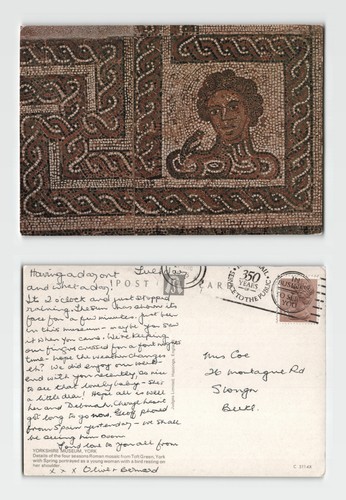 Having a day out Tuesday
and what a day!
POST CARD
It 2 o'clock and just stopped
raining. The Sun has shown its
face for a few minutes. Just been
in this museum - maybe you saw
it when you came. We're keeping
our fingers crossed for a fortnights
time - hope the weather changes
then. We did enjoy our week-
end with you recently, so nice
to see that lovely baby - she's
a little dear! Hope all is well
her and Deborah. Cheryl hasn't
got long to go now, Geoff phoned
from Spain yesterday - we shall
be seeing him soon.
Fond love to you all from
x x x Olive & Bernard
YORKSHIRE MUSEUM, YORK
Details of the four seasons Roman mosaic from Toft Green, York
with Spring portrayed as a young woman with a bird resting on
her shoulder.
Judges Limited, Hastings, England
ROYAL MAIL
350
YEARS
SERVICE TO THE PUBLIC
Mrs Coe
26 Montague Rd
Slough
Berks.
C 3174X